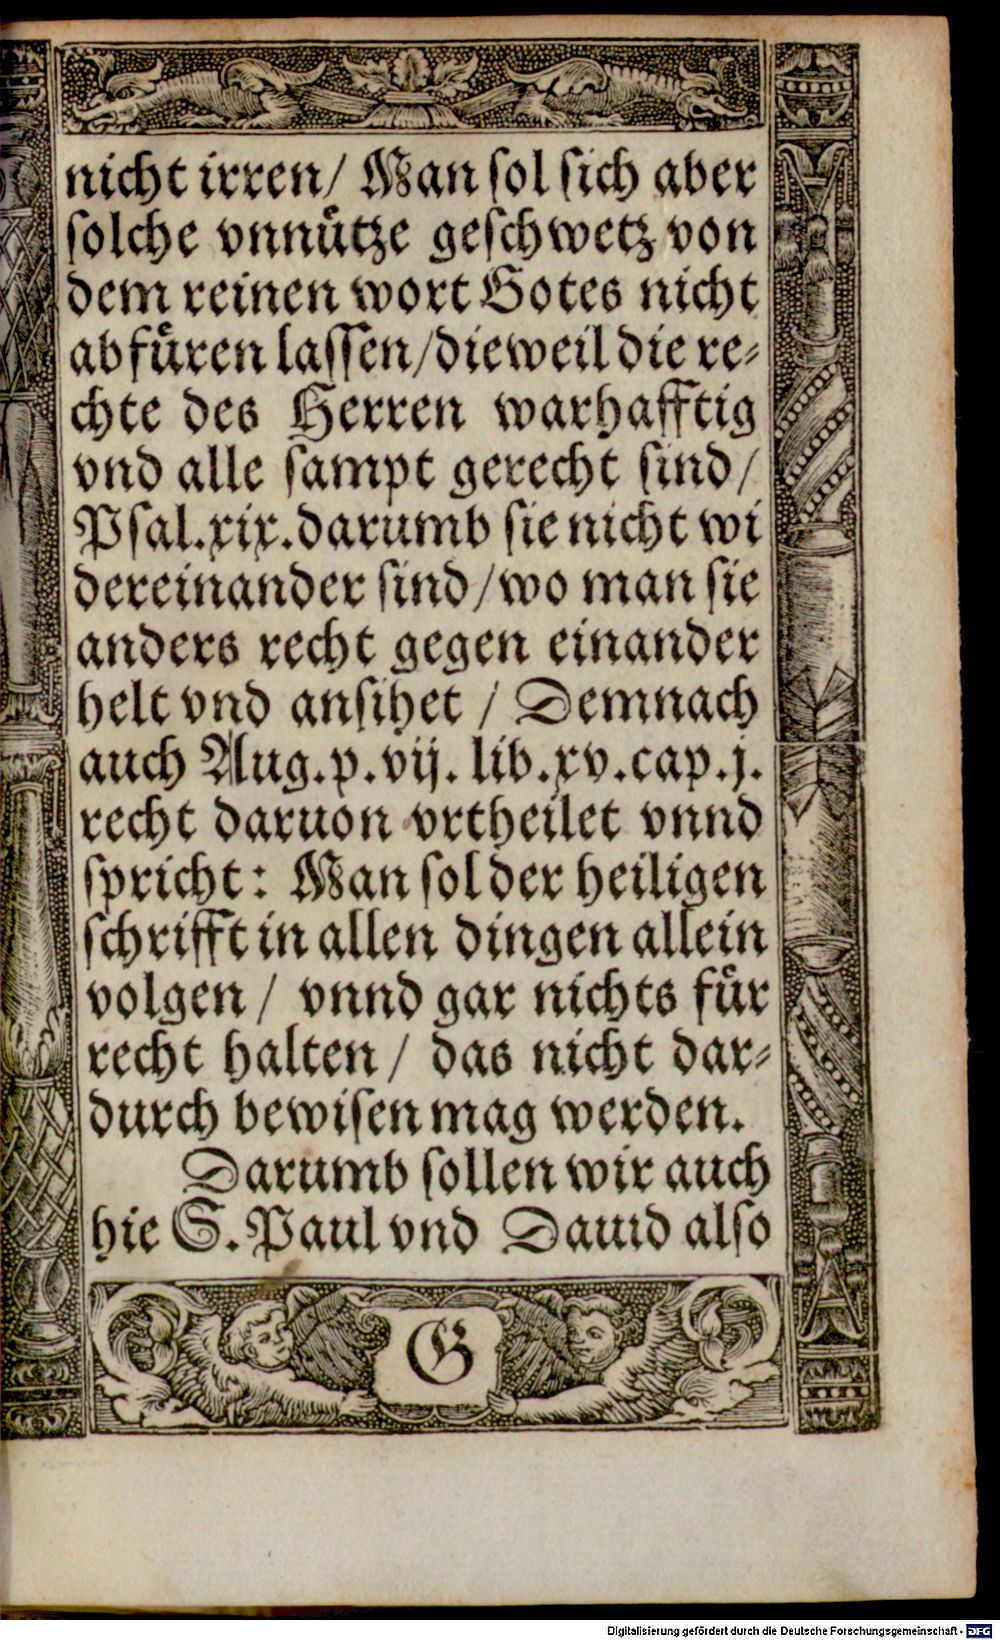 nicht irren/ Man sol sich aber
solche vnnuͤtze geschwetz von
dem reinen wort Gotes nicht
abfuͤren lassen/dieweil die re⸗
chte des Herren warhafftig
vnd alle sampt gerecht sind/
Psal.xix.darumb sie nicht wi
dereinander sind/wo man sie
anders recht gegen einander
helt vnd ansihet / Demnach
auch Aug.p.vij. lib.xv.cap.j.
recht daruon vrtheilet vnnd
spricht: Man sol der heiligen
schrifft in allen dingen allein
volgen/ vnnd gar nichts fuͤr
recht halten/ das nicht dar⸗
durch bewisen mag werden.
Darumb sollen wir auch
hie S. Paul vnd Dauid also
G
Digitalisierung gefördert durch die Deutsche Forschungsgemeinschaft - DFG